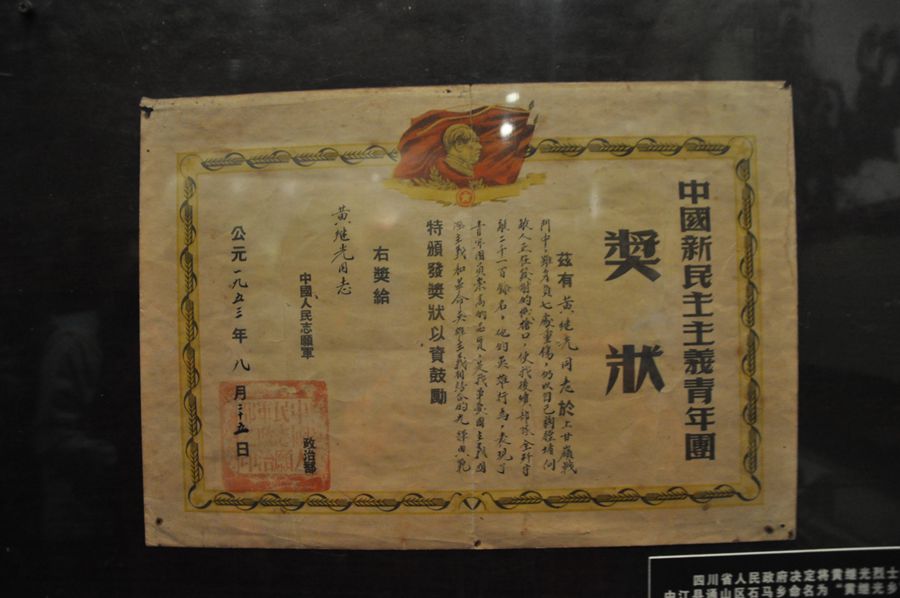 中國新民主主義青年團
獎狀
茲有黃継光同志於上甘嶺戰
鬥中，雖身負七處重傷，仍以自己胸膛堵伺
敵人正在發射的机槍口，使我後續部隊全歼守
敵二千一百餘名。他的英雄行為，表現了
青年團員崇高的品質，是我軍愛國主義國
际主義和革命英雄主義相結合的光輝典範
特頒發獎狀以資鼓勵
右獎給
黃継光同志
中國人民志願軍
政治部
公元一九五三年八月二十五日
四川省人民政府决定将黄继光烈士
中江县通山区石马乡命名为“黄继光乡